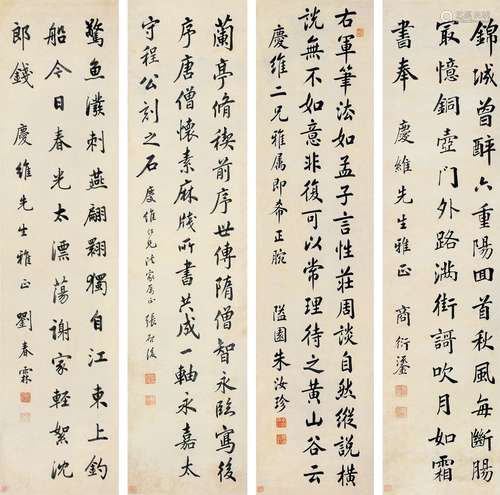 錦城曾醉六重陽回首秋風每斷腸
冣憶銅壺門外路滿街謌吹月如霜
書奉 慶維先生雅正 商衍鎏
右軍筆法如孟子言性莊周談自然縱說橫
說無不如意非復可以常理待之黃山谷云
慶維二兄雅属即希正腕 隘園朱汝珍
蘭亭脩禊前序世傳隋僧智永臨寫後
序唐僧懷素麻牋所書共成一軸永嘉太
守程公刻之石 慶維仁兄法家属正 張啟後
驚魚潑剌燕翩翾獨自江東上釣
船今日春光太漂蕩謝家輕絮沈
郎錢 慶維先生雅正 劉春霖